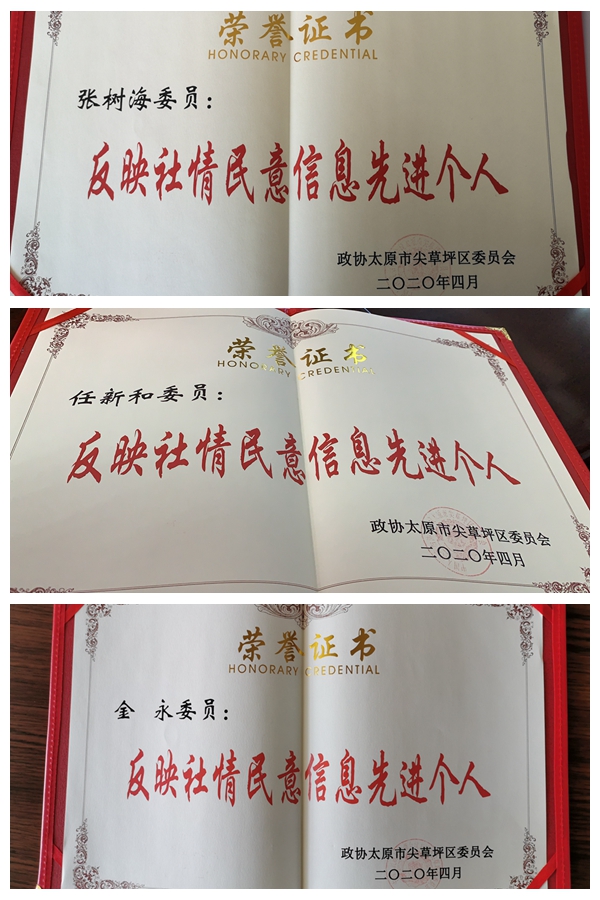 荣誉证书
HONORARY CREDENTIAL
张树海委员：
反映社情民意信息先进个人
政协太原市尖草坪区委员会
二〇二〇年四月
荣誉证书
HONORARY CREDENTIAL
任新和委员：
反映社情民意信息先进个人
政协太原市尖草坪区委员会
二〇二〇年四月
荣誉证书
HONORARY CREDENTIAL
金 永委员：
反映社情民意信息先进个人
政协太原市尖草坪区委员会
二〇二〇年四月